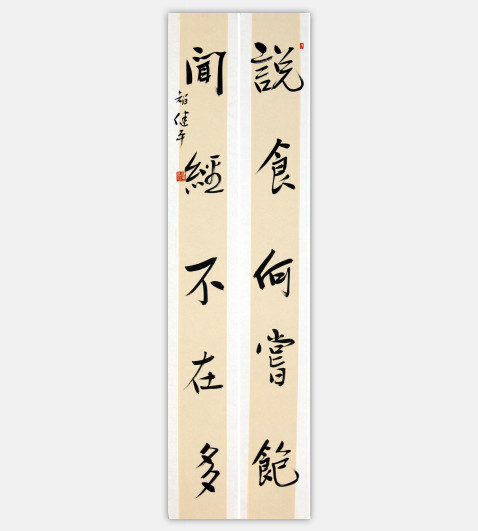 說食何嘗飽
聞經不在多
健平